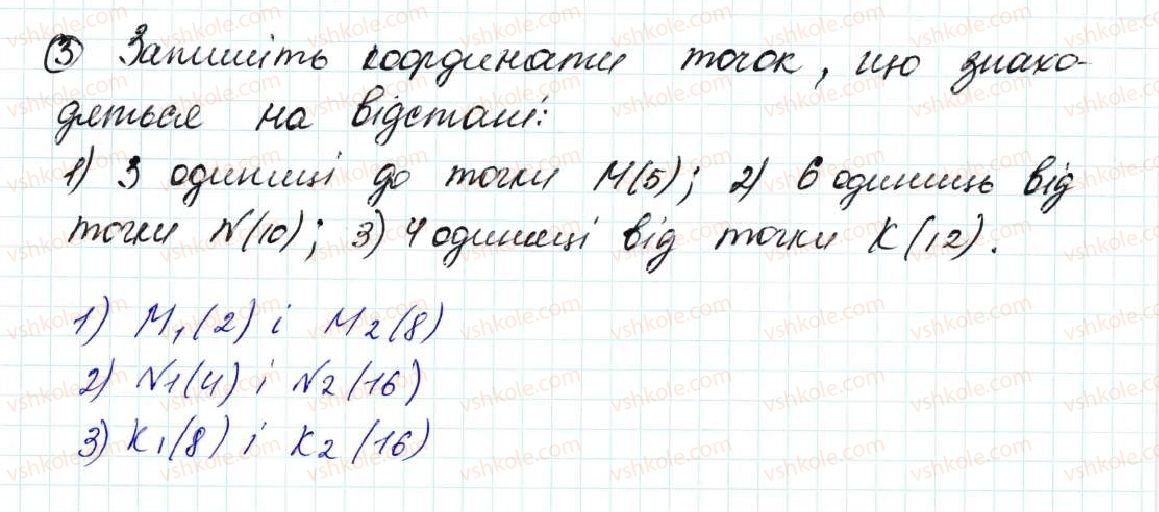 ③ Запишіть координати точок, що знахо-
дяться на відстані:
1) 3 одиниці до точки M(5); 2) 6 одиниць від
точки N(10); 3) 4 одиниці від точки K(12).
1) M₁(2) і M₂(8)
2) N₁(4) і N₂(16)
3) K₁(8) і K₂(16)